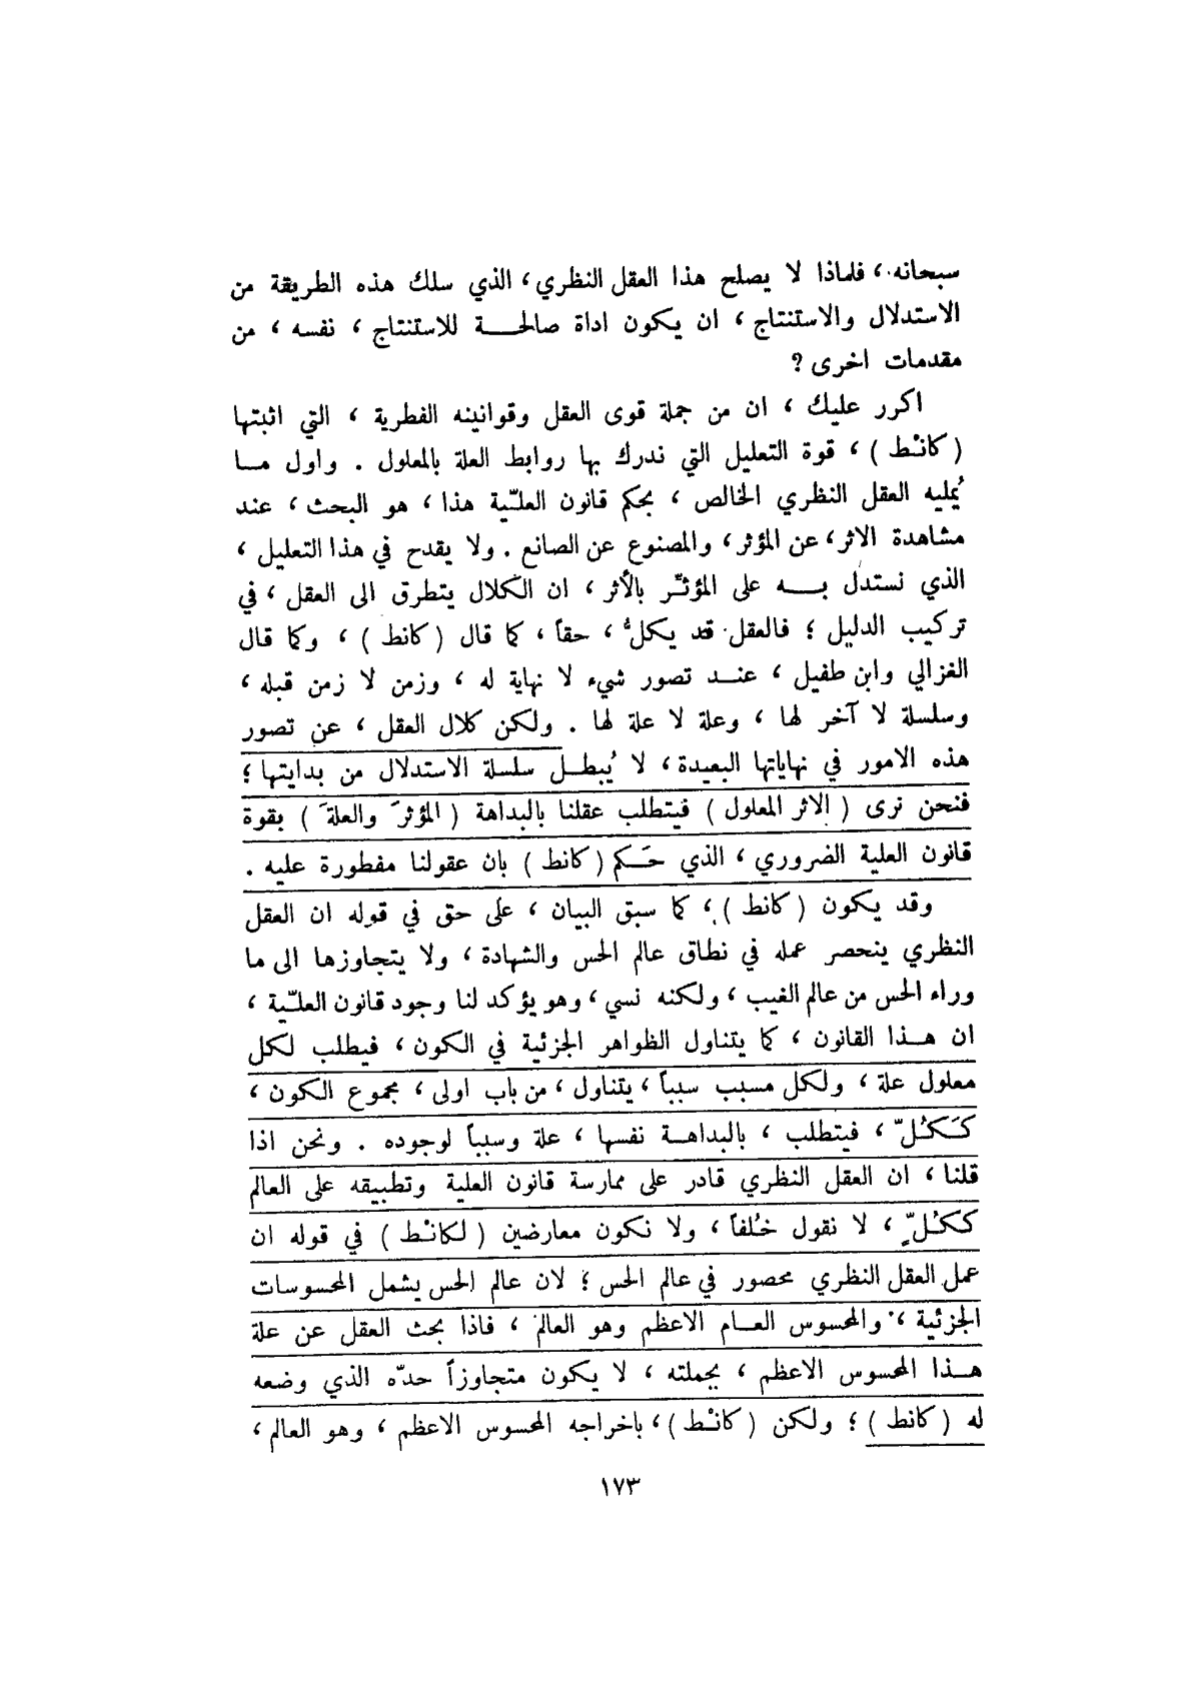 سبحانه ، فلماذا لا يصلح هذا العقل النظري ، الذي سلك هذه الطريقة من
الاستدلال والاستنتاج ، ان يكون اداة صالحـــة للاستنتاج ، نفسه ، من
مقدمات اخرى ؟
اكرر عليك ، ان من جملة قوى العقل وقوانينه الفطرية ، التي اثبتها
( كانْط ) ، قوة التعليل التي ندرك بها روابط العلة بالمعلول . واول مـا
يُمليه العقل النظري الخالص ، بحكم قانون العلـّية هذا ، هو البحث ، عند
مشاهدة الاثر ، عن المؤثر ، والمصنوع عن الصانع . ولا يقدح في هذا التعليل ،
الذي نستدل بـــه على المؤثـّر بالأثر ، ان الكلال يتطرق الى العقل ، في
تركيب الدليل ؛ فالعقل قد يكلُّ ، حقاً ، كما قال ( كانط ) ، وكما قال
الغزالي وابن طفيل ، عنــد تصور شيء لا نهاية له ، وزمن لا زمن قبله ،
وسلسلة لا آخر لها ، وعلة لا علة لها . ولكن كلال العقل ، عن تصور
هذه الامور في نهاياتها البعيدة ، لا يُبطـل سلسلة الاستدلال من بدايتها ؛
فنحن نرى ( الاثر المعلول ) فيتطلب عقلنا بالبداهة ( المؤثرَ والعلةَ ) بقوة
قانون العلية الضروري ، الذي حَـكم ( كانط ) بان عقولنا مفطورة عليه .
وقد يكون ( كانط ) ، كما سبق البيان ، على حق في قوله ان العقل
النظري ينحصر عمله في نطاق عالم الحس والشهادة ، ولا يتجاوزها الى ما
وراء الحس من عالم الغيب ، ولكنه نسي ، وهو يؤكد لنا وجود قانون العلـّية ،
ان هــذا القانون ، كما يتناول الظواهر الجزئية في الكون ، فيطلب لكل
معلول علة ، ولكل مسبب سبباً ، يتناول ، من باب اولى ، مجموع الكون ،
كَـكـُـلّ ، فيتطلب ، بالبداهــة نفسها ، علة وسبباً لوجوده . ونحن اذا
قلنا ، ان العقل النظري قادر على ممارسة قانون العلية وتطبيقه على العالم
ككـُـلٍّ ، لا نقول خُلفاً ، ولا نكون معارضين ( لكانْط ) في قوله ان
عمل العقل النظري محصور في عالم الحس ؛ لان عالم الحس يشمل المحسوسات
الجزئية ، والمحسوس العــام الاعظم وهو العالم ، فاذا بحث العقل عن علة
هــذا المحسوس الاعظم ، بجملته ، لا يكون متجاوزاً حدّه الذي وضعه
له ( كانط ) ؛ ولكن ( كانْط ) ، باخراجه المحسوس الاعظم ، وهو العالم ،
١٧٣